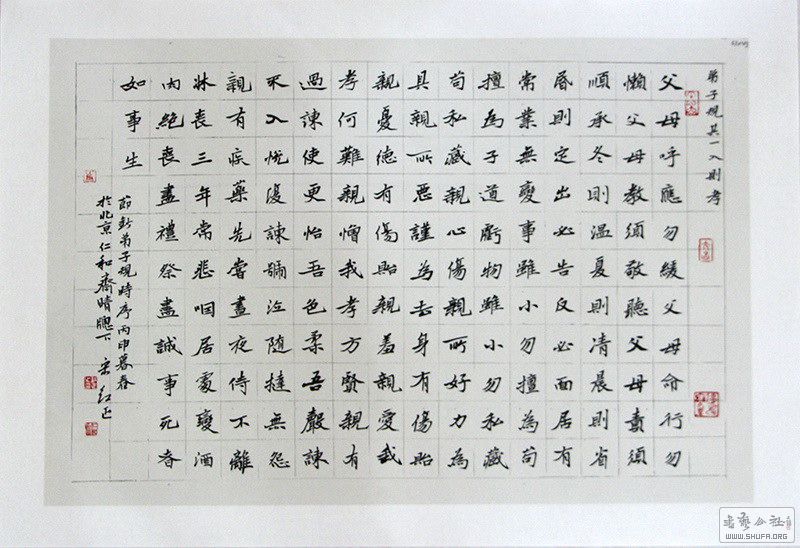 弟子規其一入則孝
父母呼應勿緩父母命行勿
懶父母教須敬聽父母責須
順承冬則溫夏則凊晨則省
昏則定出必告反必面居有
常業無變事雖小勿擅為苟
擅為子道虧物雖小勿私藏
苟私藏親心傷親所好力為
具親所惡謹為去身有傷貽
親憂德有傷貽親羞親愛我
孝何難親憎我孝方賢親有
過諫使更怡吾色柔吾聲諫
不入悅復諫號泣隨撻無怨
親有疾藥先嘗晝夜侍不離
牀喪三年常悲咽居處變酒
肉絕喪盡禮祭盡誠事死者
如事生
節錄弟子規時序丙申暮春
於北京仁和齋晴窗下 宋红正
書藝公社
WWW.SHUFA.ORG